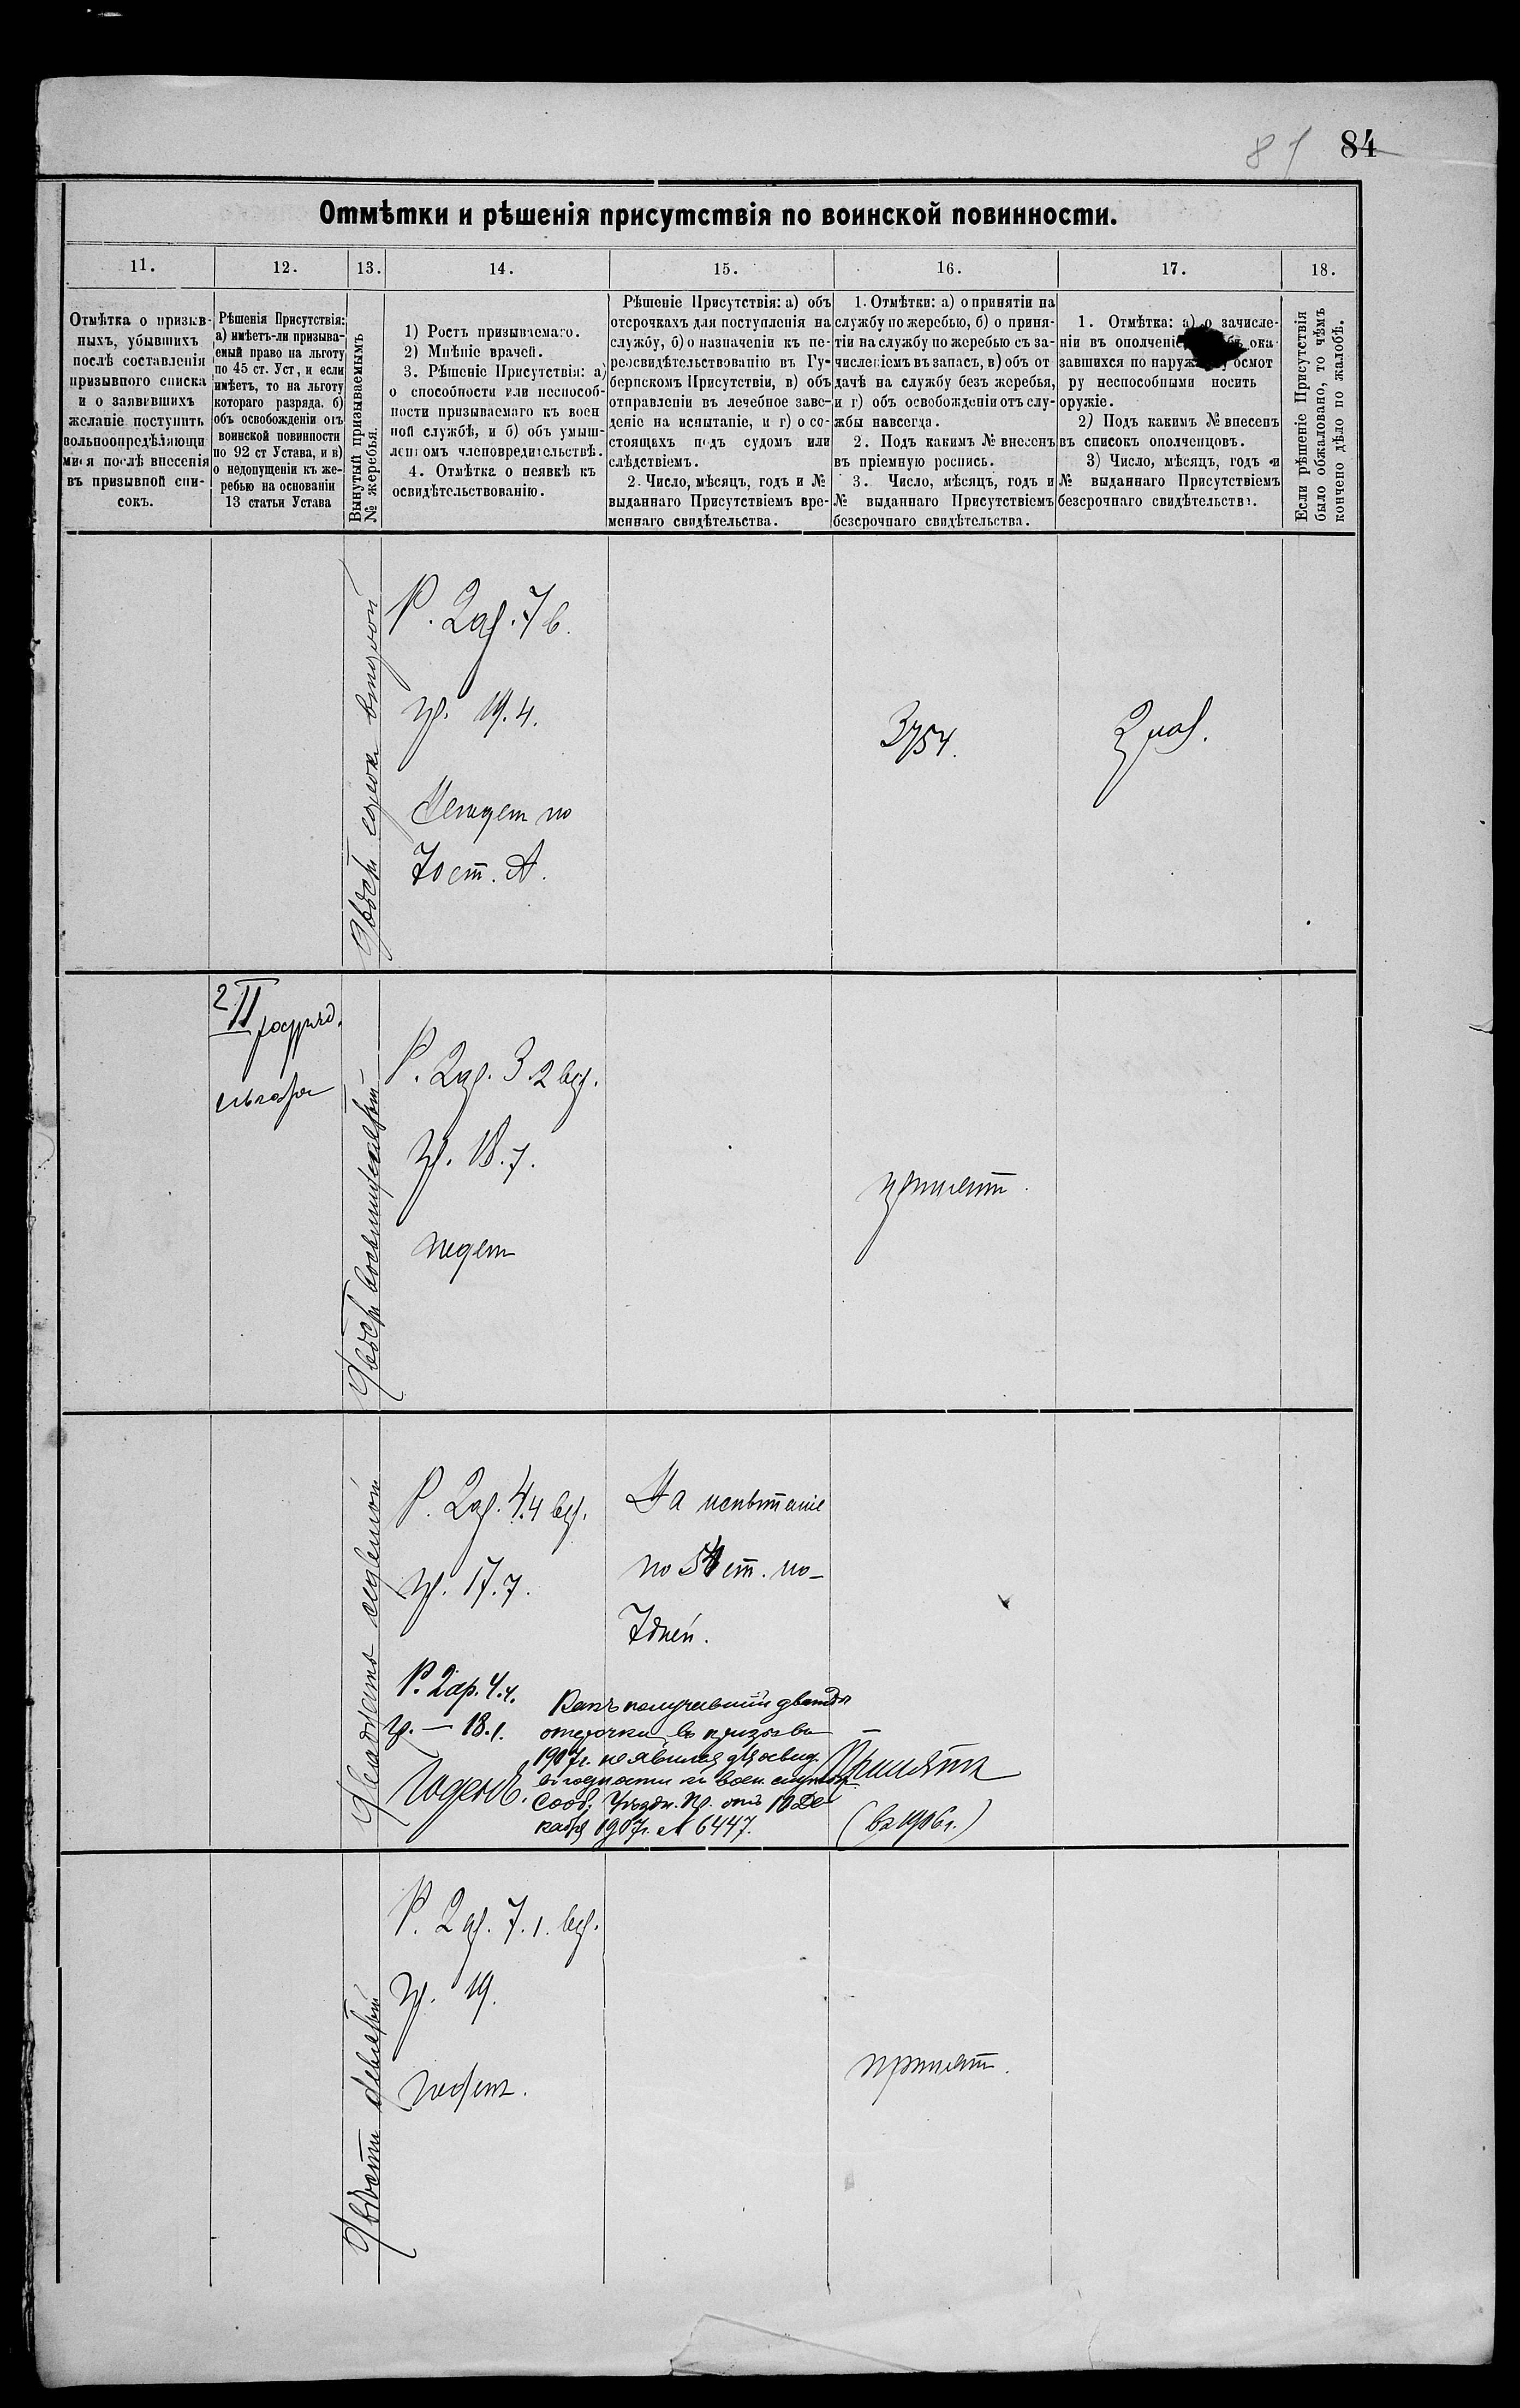 84
Отмѣтки и рѣшенія присутствія по воинской повинности.
11.
12.
13.
14.
15.
16.
17.
18.
Отмѣтка о призыв-
ныхъ, убывшихъ
послѣ составленія
призывного списка
и о заявившихъ
желаніе поступить
вольноопредѣляющи
мися послѣ внесенія
въ призывной спи-
сокъ.
Рѣшенія Присутствія:
а) имѣетъ-ли призыва-
емый право на льготу
по 45 ст. Уст, и если
имѣетъ, то на льготу
котораго разряда. б)
объ освобожденіи отъ
воинской повинности
по 92 ст Устава, и в)
о недопущеніи къ же-
ребью на основаніи
13 статьи Устава
Вынутый призываемымъ
№ жеребья.
1) Ростъ призываемаго.
2) Мнѣніе врачей.
3. Рѣшеніе Присутствія: а)
о способности или неспособ-
ности призываемаго къ воен
ной службѣ, и б) объ умыш-
ленномъ членовредительствѣ.
4. Отмѣтка о неявкѣ къ
освидѣтельствованію.
Рѣшеніе Присутствія: а) объ
отсрочкахъ для поступленія на
службу, б) о назначеніи къ пе-
реосвидѣтельствованію въ Гу-
бернскомъ Присутствіи, в) объ
отправленіи въ лечебное заве-
деніе на испытаніе, и г) о со-
стоящихъ подъ судомъ или
слѣдствіемъ.
2. Число, мѣсяцъ, годъ и №
выданнаго Присутствіемъ вре-
меннаго свидѣтельства.
1. Отмѣтки: а) о принятіи на
службу по жеребью, б) о приня-
тіи на службу по жеребью съ за-
численіемъ въ запасъ, в) объ от
дачѣ на службу безъ жеребья,
и г) объ освобожденіи отъ слу-
жбы навсегда.
2. Подъ какимъ № внесенъ
въ пріемную роспись.
3. Число, мѣсяцъ, годъ и
№ выданнаго Присутствіемъ
безсрочнаго свидѣтельства.
1. Отмѣтка: а) о зачисле-
ніи въ ополченіе ока-
завшихся по наруж осмот
ру неспособными носить
оружіе.
2) Подъ какимъ № внесенъ
въ списокъ ополченцовъ.
3) Число, мѣсяцъ, годъ и
№ выданнаго Присутствіемъ
безсрочнаго свидѣтельства.
Если рѣшеніе Присутствія
было обжаловано, то чѣмъ
кончено дѣло по жалобѣ.
Р. 2 ар. 7 в.
гр. 19.4.
ст. А.
3754.
2
II разряд.
льгота
Р. 2 ар. 3.2 вер.
гр. 18.7.
годен
принят.
Р. 2 ар. 4.4 вер.
гр. 17.7.
На испытаніе
по ст. по
7 дней.
Р. 2 ар. 4.4.
гр. — 18.1.
Годенъ.
Какъ получившій дважды
отсрочки въ призывъ
1907г. не явился для освид.
въ годности къ воен. службѣ
Сооб. Уѣздн. Пр. отъ 10 Де
кабря 1907г. № 6447.
Принятъ
(въ 1906г.)
Р. 2 ар. 7.1. вер.
гр. 19.
годенъ.
принят.